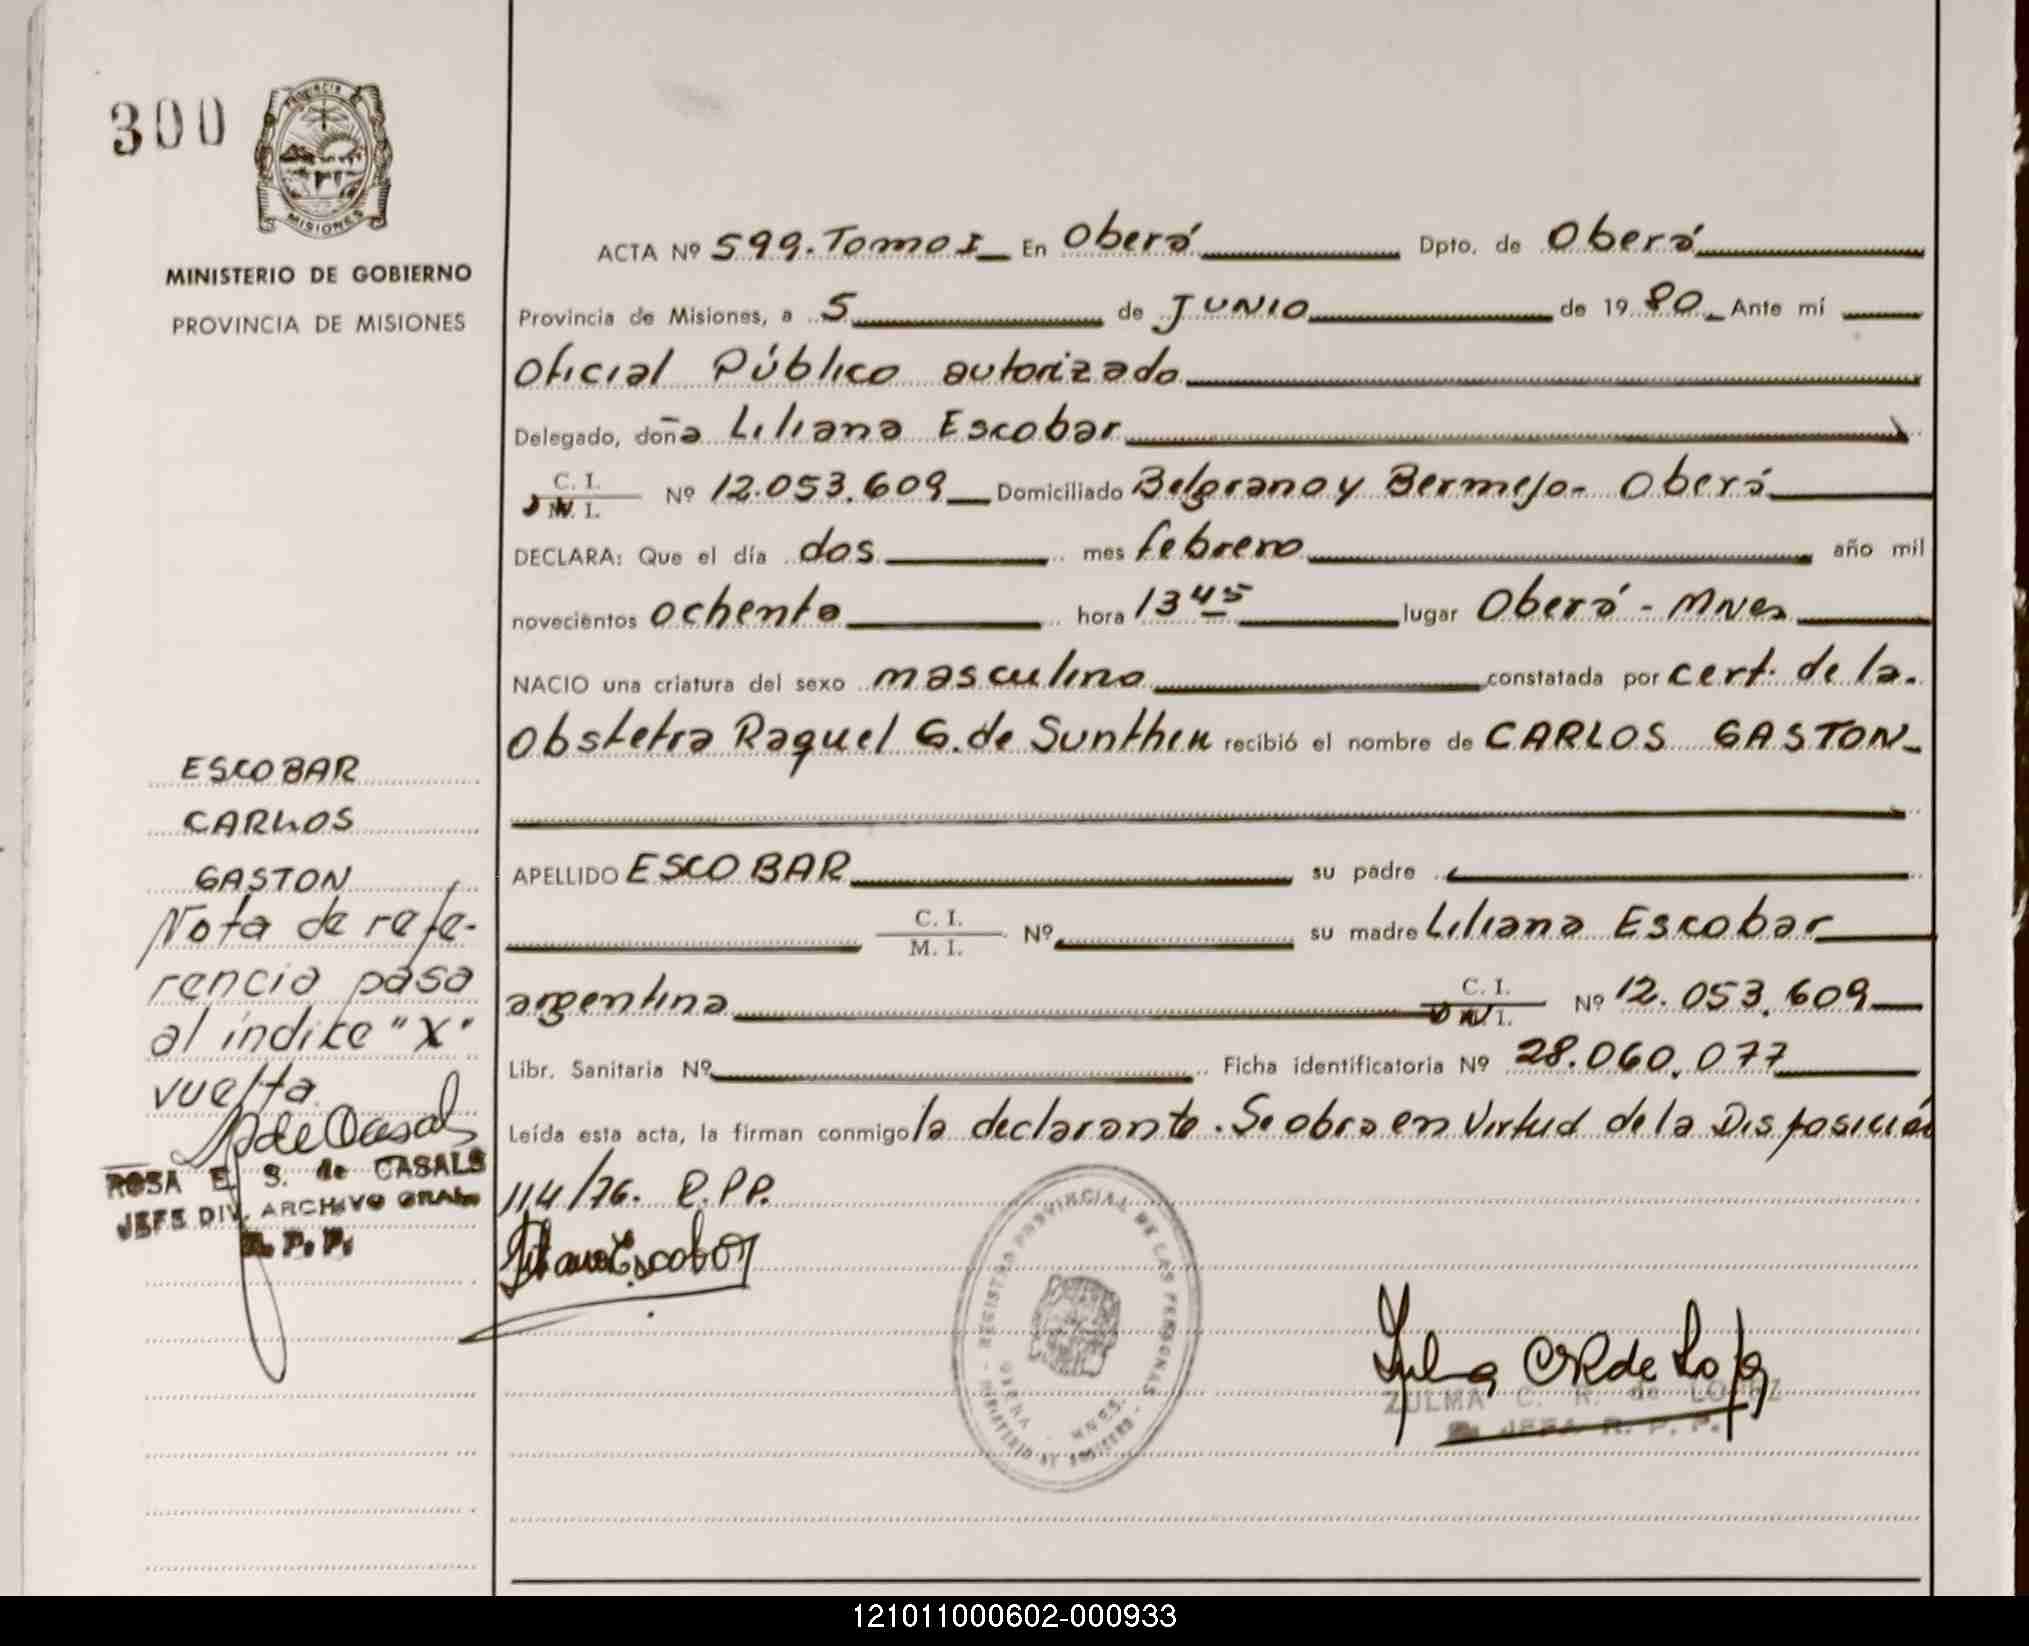 300
PROVINCIA DE
MISIONES
MINISTERIO DE GOBIERNO
PROVINCIA DE MISIONES
ACTA Nº 599. Tomo I En Oberá Dpto. de Oberá
Provincia de Misiones, a 5 de JUNIO de 1980. Ante mí
Oficial Público autorizado
Delegado, doña Liliana Escobar
C. I.
D N I. Nº 12.053.609 Domiciliado Belgrano y Bermejo - Oberá
DECLARA: Que el día dos mes febrero año mil
novecientos ochenta hora 13 45 lugar Oberá - Mnes
NACIO una criatura del sexo masculino constatada por cert. de la
Obstetra Raquel G. de Sunthen recibió el nombre de CARLOS GASTON
ESCOBAR
CARLOS
GASTON
APELLIDO ESCOBAR su padre
C. I.
M. I. Nº su madre Liliana Escobar
argentina C. I.
D N I. Nº 12.053.609
Libr. Sanitaria Nº Ficha identificatoria Nº 28.060.077
Leída esta acta, la firman conmigo la declarante. Se obra en virtud de la Disposición
114/76. R.PP.
Nota de refe-
rencia pasa
al índice "X"
vuelta.
SPde Casals
ROSA E. S. de CASALS
JEFE DIV. ARCHIVO GRAL.
R. P. P.
Liliana Escobar
REGISTRO PROVINCIAL DE LAS PERSONAS
OBERA - MNES.
MINISTERIO DE GOBIERNO
Zulma CR de Lopez
ZULMA C. R. de LOPEZ
JEFA R. P. P.
121011000602-000933